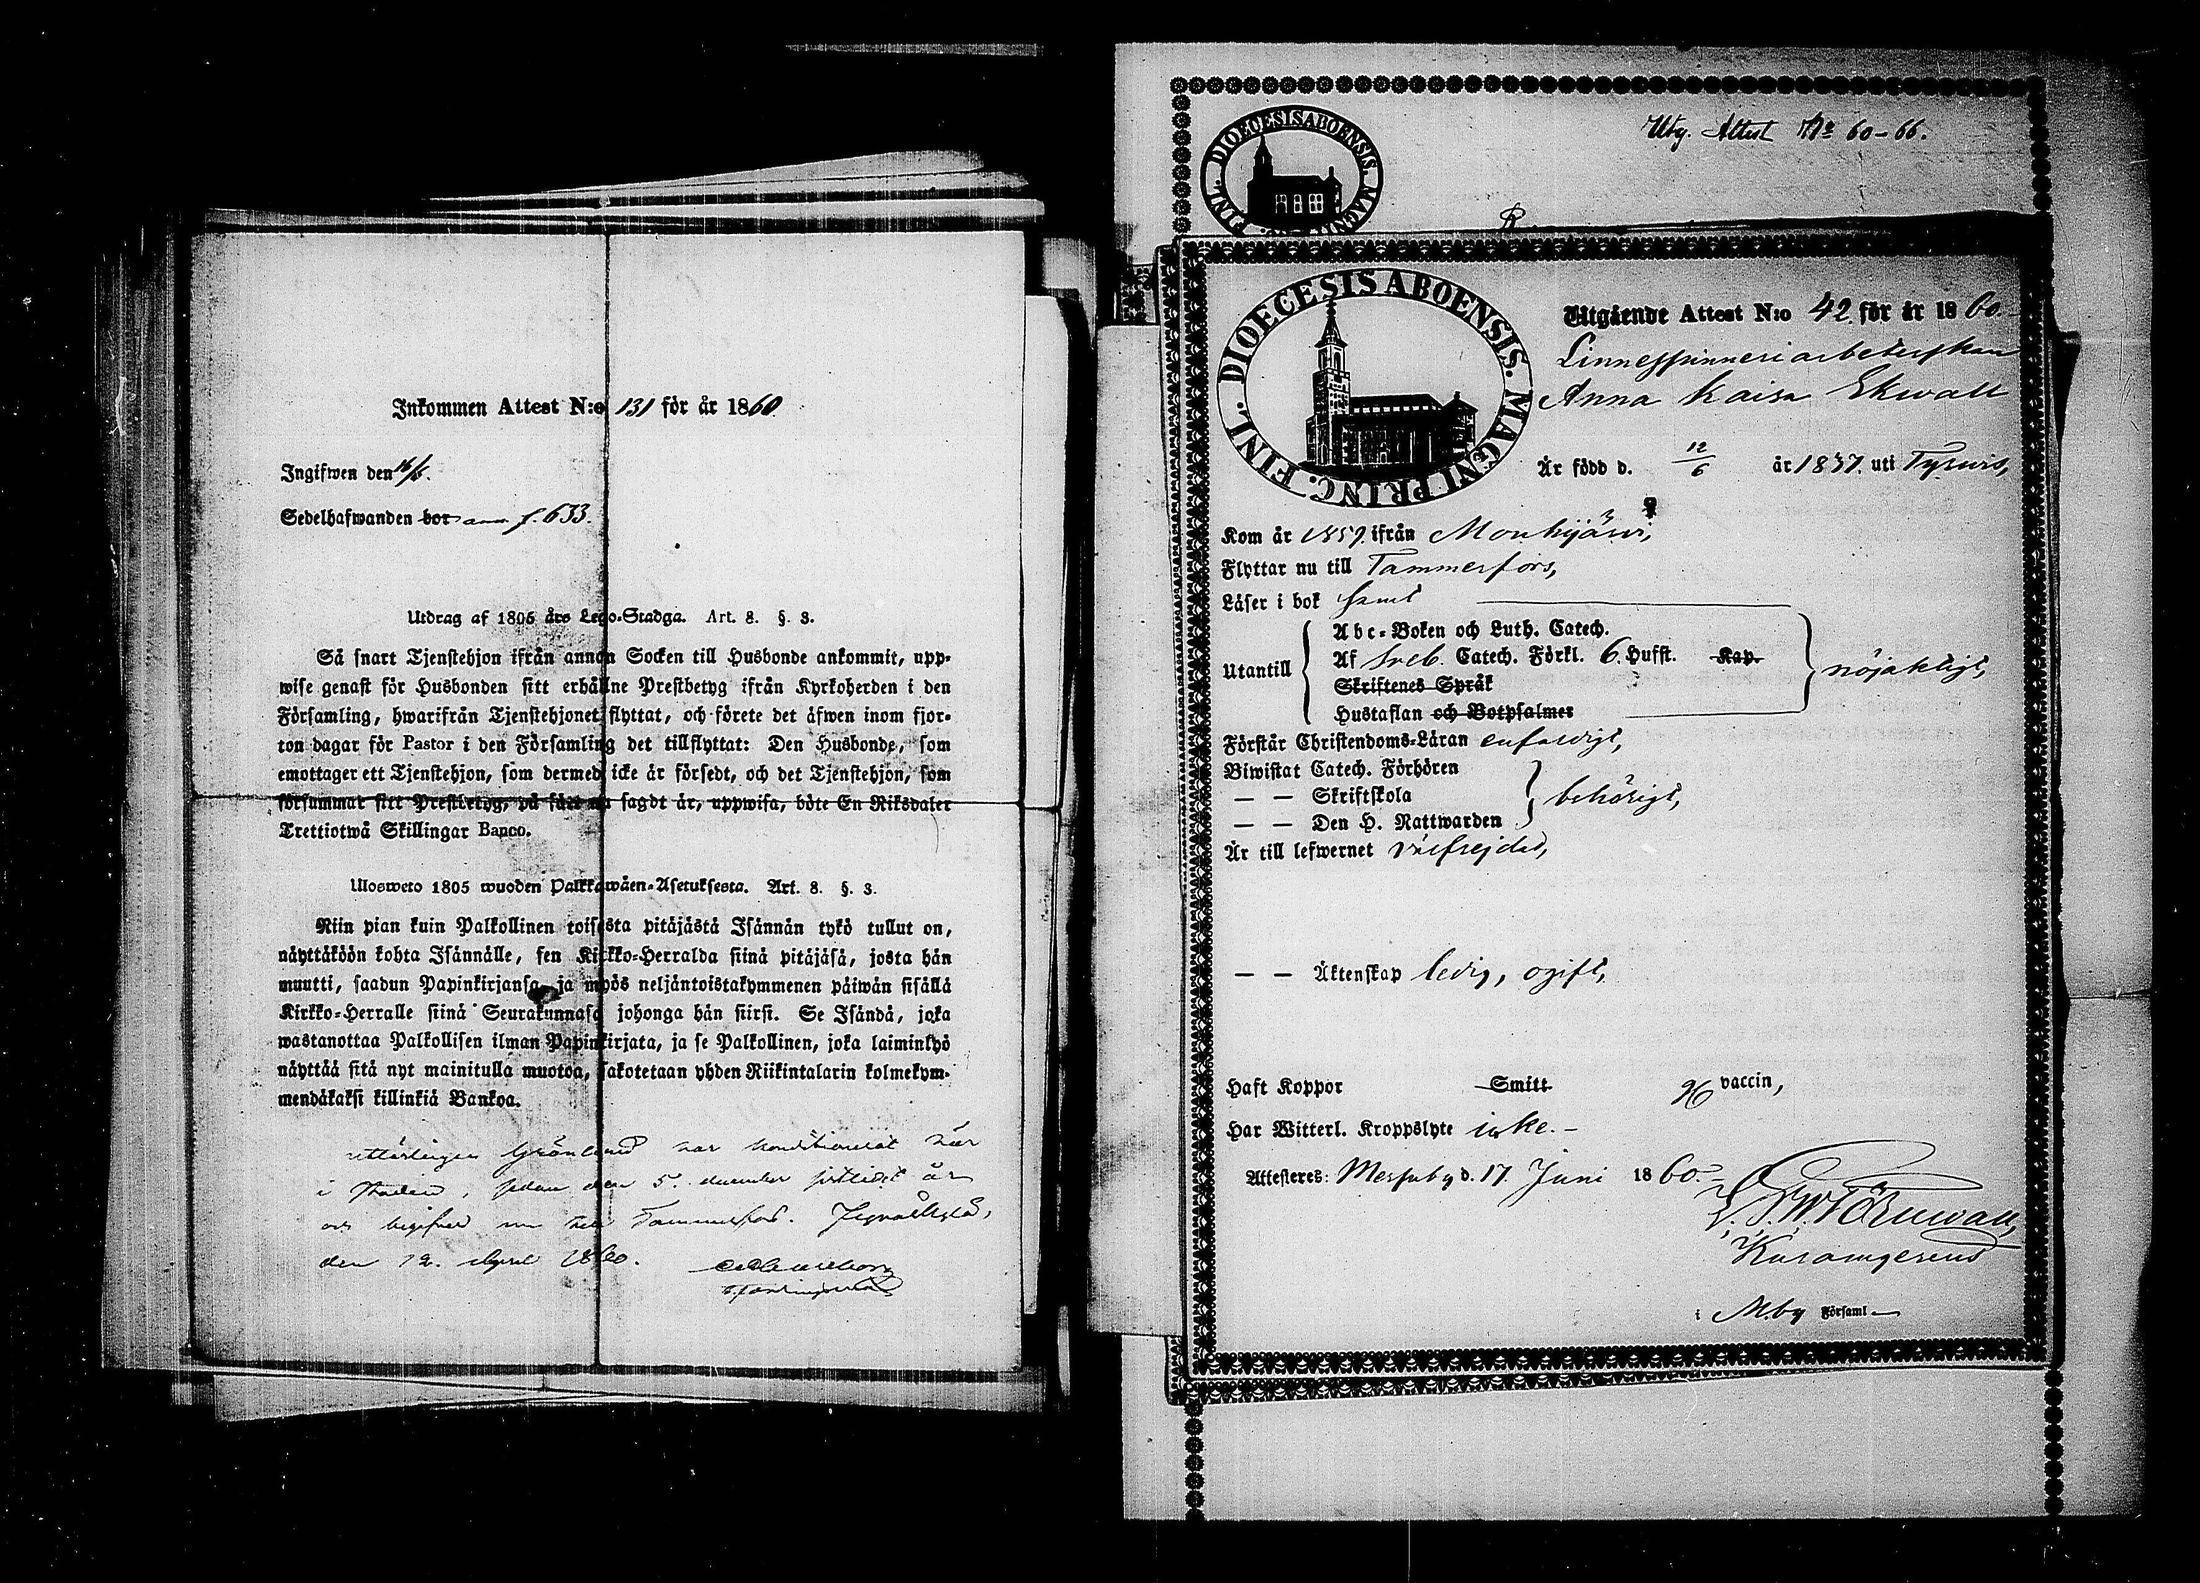 Inkommen Attest N:o 131 för år 1860
Ingifwen den 16/6.
Sedelhafwanden bor ann f. 633.
Utdrag af 1805 års Lego-Stadga. Art. 8. §. 3.
Så snart Tjenstehjon ifrån annan Socken till Husbonde ankommit, upp-
wise genast för Husbonden sitt erhållne Prestbetyg ifrån Kyrkoherden i den
Församling, hwarifrån Tjenstehjonet flyttat, och förete det äfwen inom fjor-
ton dagar för Pastor i den Församling det tillflyttat: Den Husbonde, som
emottager ett Tjenstehjon, som dermed icke är försedt, och det Tjenstehjon, som
försummar sitt Prestbetyg, på sätt nu sagdt är, uppwisa, böte En Riksdaler
Trettiotwå Skillingar Banco.
Ulosweto 1805 wuoden Palkkawäen-Asetuksesta. Art. 8. §. 3.
Niin pian kuin Palkollinen toisesta pitäjästä Isännän tykö tullut on,
näyttäköön kohta Isännälle, sen Kirkko-Herralda siinä pitäjäsä, josta hän
muutti, saadun Papinkirjansa, ja myös neljäntoistakymmenen päiwän sisällä
Kirkko-Herralle siinä Seurakunnasa johonga hän siirsi. Se Isändä, joka
wastanottaa Palkollisen ilman Papinkirjata, ja se Palkollinen, joka laiminlyö
näyttää sitä nyt mainitulla muotoa, sakotetaan yhden Riikintalarin kolmekym-
mendäkaksi killinkiä Bankoa.
Grönlund har konditionerat här
i Staden, sedan den 5. december sistlidet år
och begifver nu till Tammerfors.
den 12. April 1860.
Utg. Attest No 60-66.
DIOECESIS ABOENSIS. MAGNI PRINC. FINL.
DIOECESIS ABOENSIS. MAGNI PRINC. FINL.
Utgående Attest N:o 42. för år 1860.
Linnespinneriarbeterskan
Anna Kaisa Ekwall
Är född d. 12/6 år 1837. uti Tyrwis,
Kom år 1859. ifrån Mouhijärvi,
Flyttar nu till Tammerfors,
Läser i bok samt
Abc-Boken och Luth. Catech.
Utantill Af Sveb. Catech. Förkl. 6. Hufst. Kap. nöjaktigt,
Skriftenes Språk
Hustaflan och Botpsalmer
Förstår Christendoms-Läran enfaldigt,
Biwistat Catech. Förhören
— — Skriftskola behörigt,
— — Den H. Nattwarden
Är till lefwernet välfrejdad,
— — Äktenskap ledig, ogift,
Haft Koppor Smitt vaccin,
Har Witterl. Kroppslyte icke.-
Attesteres: Messuby d. 17. Juni 1860.
Törnwall,
i M.by Församl